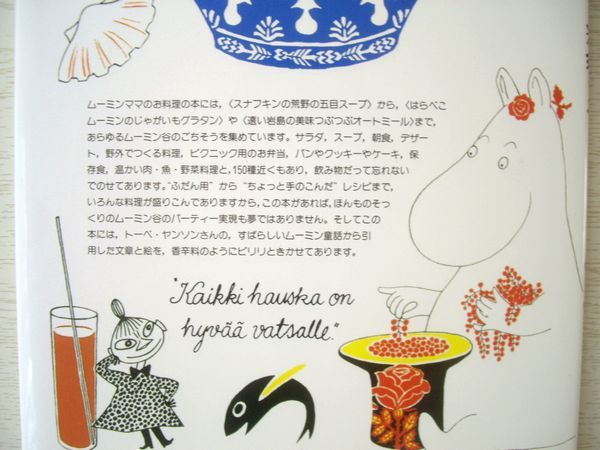 ムーミンママのお料理の本には,〈スナフキンの荒野の五目スープ〉から,〈はらぺこ
ムーミンのじゃがいもグラタン〉や〈遠い岩島の美味つぶつぶオートミール〉まで,
あらゆるムーミン谷のごちそうを集めています。サラダ, スープ, 朝食, デザー
ト, 野外でつくる料理, ピクニック用のお弁当, パンやクッキーやケーキ, 保
存食, 温かい肉・魚・野菜料理と, 150種近くもあり, 飲み物だって忘れない
でのせてあります。"ふだん用" から "ちょっと手のこんだ" レシピまで,
いろんな料理が盛りこんでありますから, この本があれば, ほんものそっ
くりのムーミン谷のパーティー実現も夢ではありません。そしてこの
本には, トーベ・ヤンソンさんの, すばらしいムーミン童話から引
用した文章と絵を, 香辛料のようにピリリときかせてあります。
"Kaikki hauska on
hyvää vatsalle."